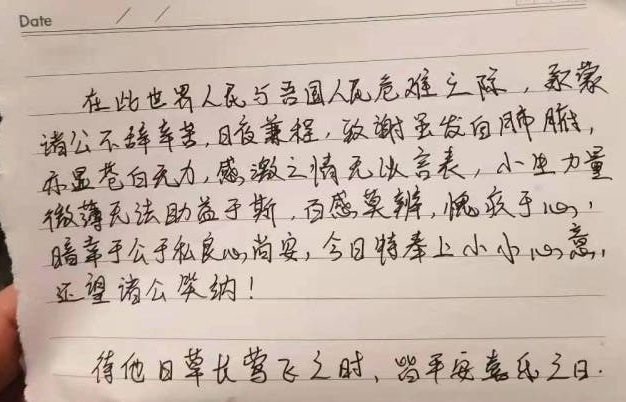 Date / /
在此世界人民与吾国人民危难之际，承蒙
诸公不辞辛苦，日夜兼程，致谢虽发自肺腑，
亦显苍白无力，感激之情无以言表，小生力量
微薄无法助益于斯，百感莫辨，愧疚于心，
暗幸于公于私良心尚安，今日特奉上小小心意，
还望诸公笑纳！
待他日草长莺飞之时，皆平安喜乐之日.